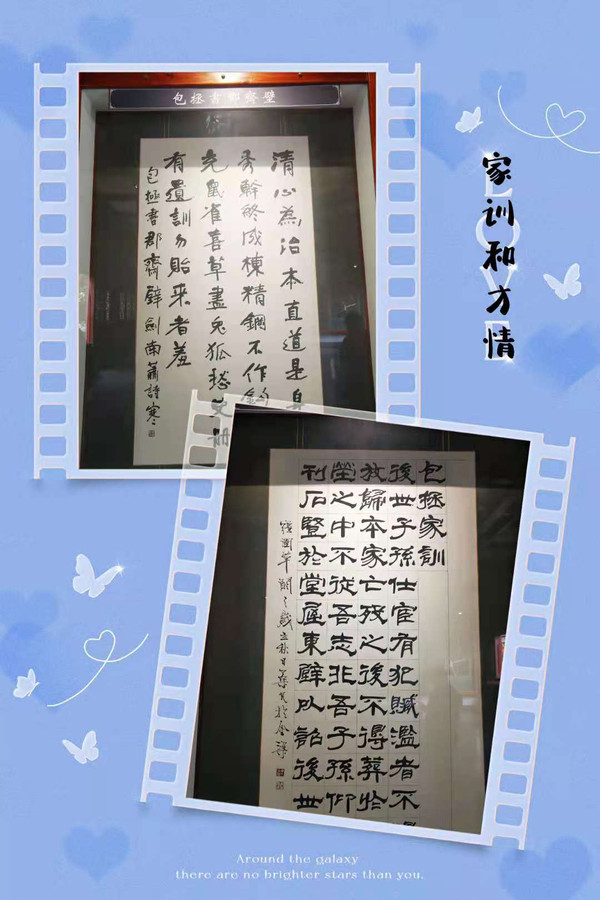 包拯書郡齊壁
清心為治本直道是身
秀幹終成棟精鋼不作鈎
充鼠雀喜草盡兔狐愁史册
有遺訓勿貽来者羞
包拯書郡齋壁劍南蕭詩寒
家训和才情
LOVE
包拯家訓
後世子孫仕宦有犯贓濫者不
放歸本家亡殁之後不得葬於
塋之中不從吾志非吾子孫仰
刊石豎於堂屋東壁以詔後世
Around the galaxy
there are no brighter stars than you.